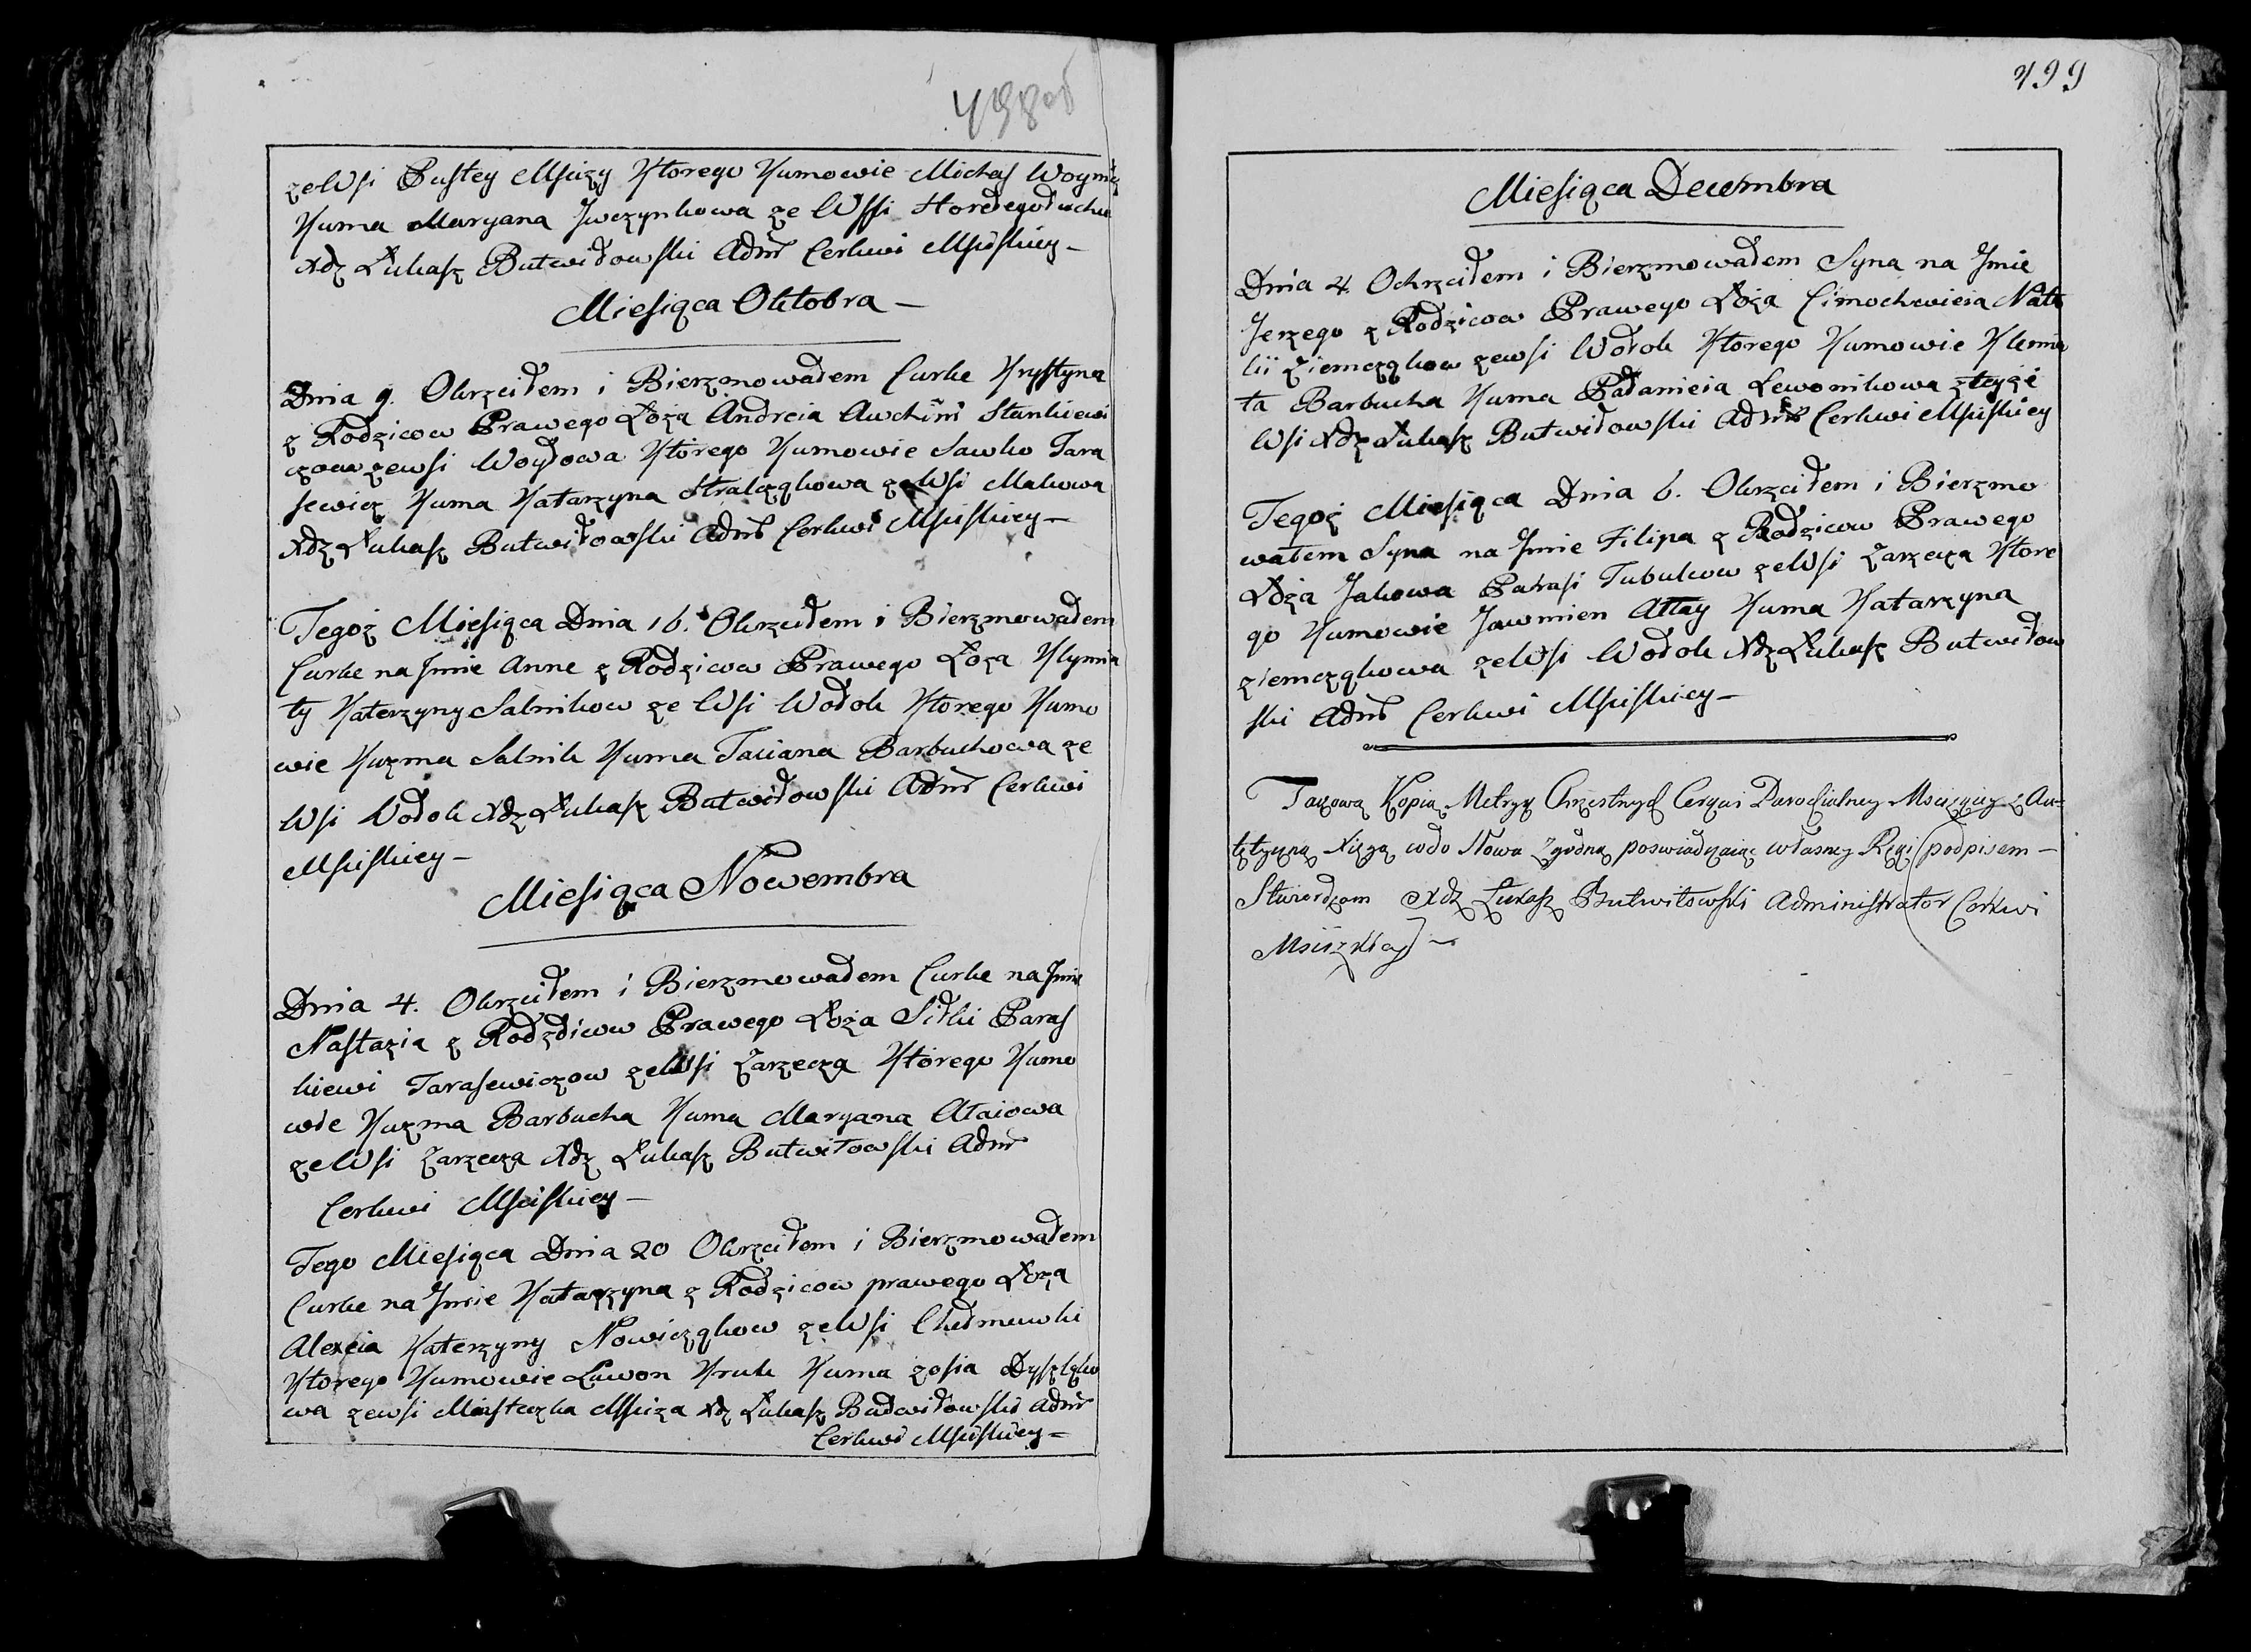 498 об
zeWsi Pustey Msciży Ktorego Kumowie Michaś Woynicz
Kuma Maryana Jwczynkowa ze Wssi
Xdz Łukasz Butwiłowski Admr Cerkwi Msciskiey –
Miesiąca Oktobra –
Dnia 9. Okrzciłem i Bierzmowałem Curke Krystyna
z Rodzicow Prawego Łoża Andreia Auchini Stankiewi
czow zewsi Woyłowa Którego Kumowie Sawko Tara
sewicz Kuma Katarzyna Stralcząkowa zeWsi Makowa
Xdz Łukasz Butwiłowski Admr Cerkwi Msciskiey –
Tegoż Miesiąca Dnia 16. Okrzciłem i Bierzmowałem
Curke na Jmie Anne z Rodzicow Prawego Łoża Klymia
ty Katerzyny Salnikow ze Wsi Wołok Ktorego Kumo
wie Kuzma Salnik Kuma Taciana Barbuchowa ze
Wsi Wołok Xdz Łukasz Butwiłowski Admr Cerkwi
Msciskiey –
Miesiąca Nowembra
Dnia 4. Okrzciłem i Bierzmowałem Curke na Jmie
Nastazia z Rodzdicow Prawego Łoża Siłki Paras
kiewi Tarasewiczow zeWsi Zarzecza Którego Kumo
wie Kuzma Barbucha Kuma Maryana Ataiowa
zeWsi Zarzecza Xdz Łukasz Butwiłowski Admr
Cerkwi Msciskiey –
Tego Miesiąca Dnia 20 Okrzciłem i Bierzmowałem
Curke na Jmie Katarzyna z Rodzicow prawego Łoża
Alexeia Katerzyny Nowicząkow zeWsi Chełmewki
Ktorego Kumowie Lawon Kruk Kuma Zosia
wa zewsi Miasteczka Msciża Xdz Łukasz Butwiłowski Admr
Cerkwi Msciskiey –
499
Miesiąca Decembra
Dnia 4. Ochrzciłem i Bierzmowałem Syna na Jmie
Jerzego z Rodzicow Prawego Łoża Cimochwieia Nata
lii Ziemcząkow zewsi Wołok Ktorego Kumowie Klemia
ta Barbucha Kuma Pałanieia Lewonikowa zteyże
Wsi Xdz Łukasz Butwiłowski Admr Cerkwi Msciskiey
Tegoż Miesiąca Dnia 6. Okrzciłem i Bierzmo
wałem Syna na Jmie Filipa z Rodzicow Prawego
Łoża Jakowa Parasi Tubukow zeWsi Zarzecza Ktore
go Kumowie Jawmien Attay Kuma Katarzyna
ziemcząkowa zeWsi Wołok Xdz Łukasz Butwiłow
ski Admr Cerkwi Msciskiey –
Takową Kopią Metryk Chrzestnych Cerqwi Parochialney Mscizkiey z Au=
tętyczną Xięgą wdo Słowa Zgodną poswiadczaiąc własney Ręki podpisem –
Stwierdzam Xdz Łukasz Butwiłowski Administrator Cerkwi
Msciżkiey –